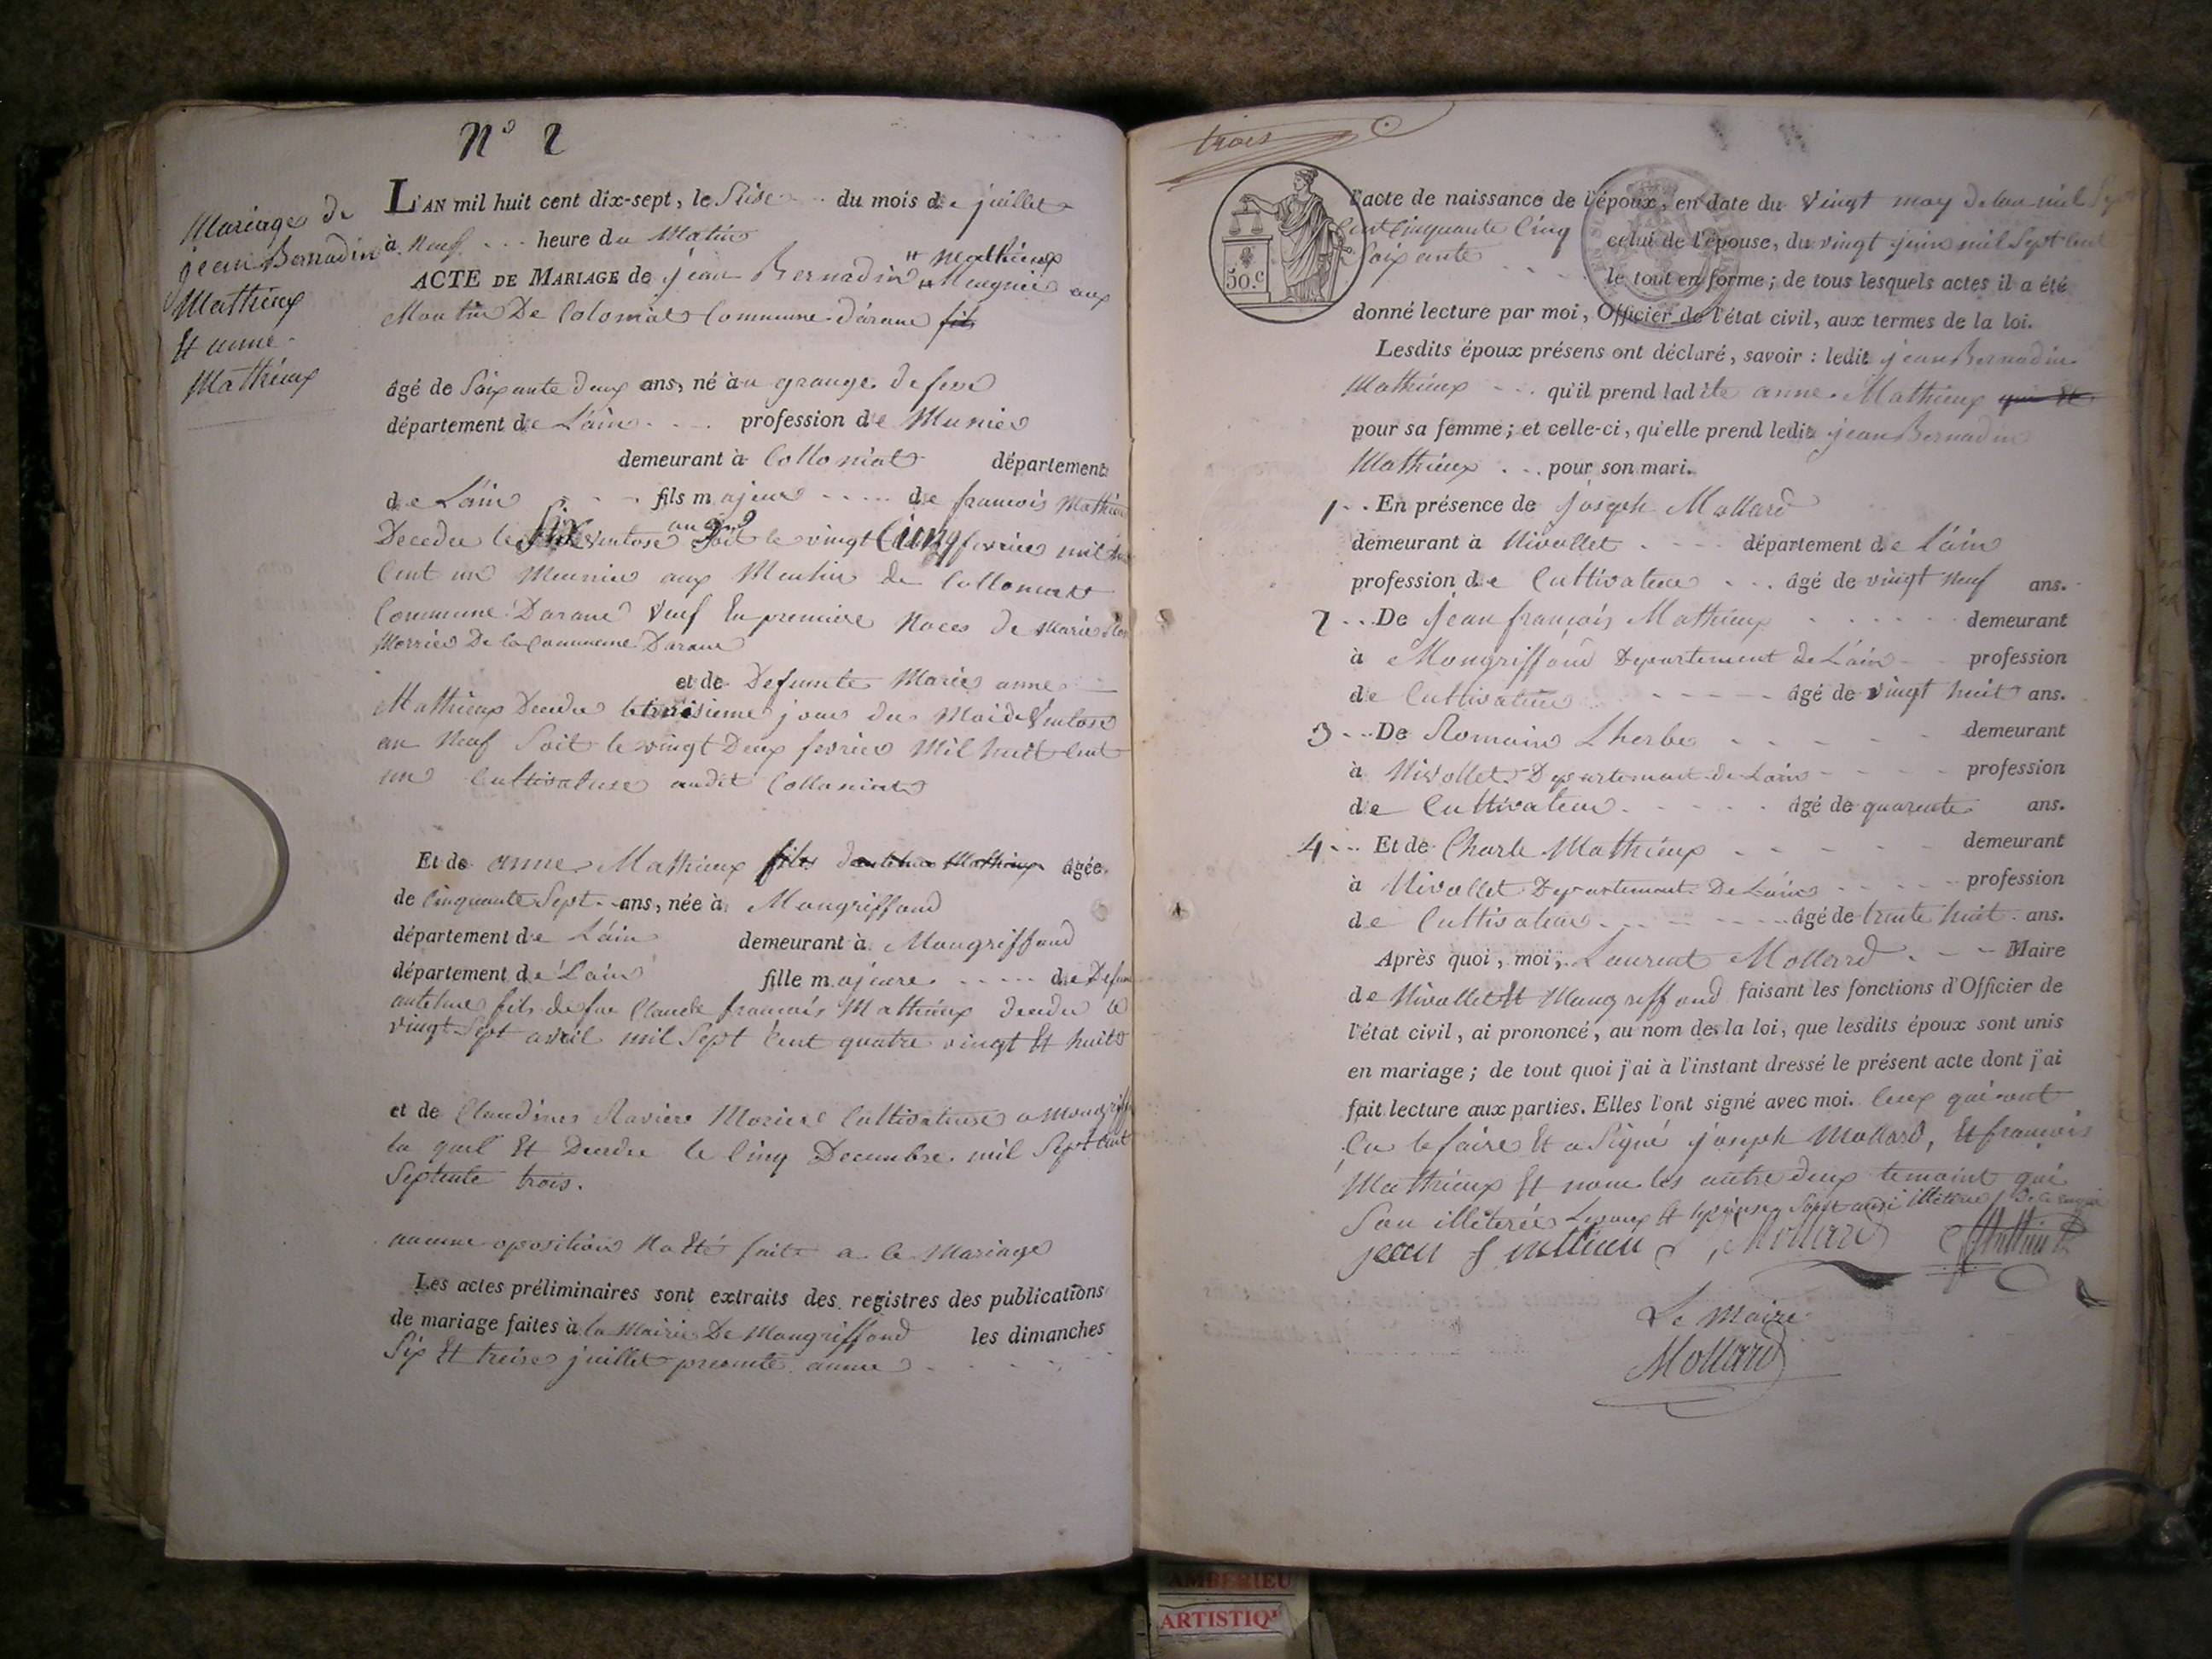 N° 2
Mariage de
jean Bernadin
Mathieux
Et anne
Mathieux
L'AN mil huit cent dix-sept, le Seise du mois de juillet
à Neuf heure du Matin
Mathieux
ACTE DE MARIAGE de jean Bernadin Meugnié aux
Moulin De Colomiat Commune d'arane fils
âgé de Soixante deux ans, né à grange de fere
département de L'ain profession de Munier
demeurant à Colloniat département
de L'ain fils majeur de francois Mathieux
an 9
Decedee le Six Ventose Soit le vingt Cinq fevrier mil huit
Cent un Meunier aux Moulin de Collomiat
Commune Darane Veuf En premiere Noces de Marie
Morrier De la Commune Darane
et de Defunte Marie anne
Mathieux Decedee le troisieme jour du Mois de Ventose
an Neuf Soit le vingt Deux fevrier Mil huit Cent
un Cultivateuse audit Colloniat
Et de anne Mathieux files d'antelme Mathieux âgée
de Cinquante Sept ans, née à Mongriffond
département de L'ain demeurant à Mongriffond
département de L'ain fille majeure de Defunt
antelme fils de feu Claude francois Mathieux decedee le
vingt Sept avril mil Sept Cent quatre vingt Et huit
et de Claudine Raviere Mariee Cultivateuse a Mongriffon
la quel Et Decedee le Cinq Decembre mil Sept Cent
Septente trois.
aucune oposition Na Eté faite a le Mariage
Les actes préliminaires sont extraits des registres des publications
de mariage faites à la Mairie De Mongriffond les dimanches
Six Et treise juillet presente annee
trois
50.c
l'acte de naissance de l'époux, en date du Vingt may de lan mil Sept
Cent Cinquante Cinq celui de l'épouse, du vingt juin mil Sept Cent
Soixante
le tout en forme; de tous lesquels actes il a été
donné lecture par moi, Officier de l'état civil, aux termes de la loi.
Lesdits époux présens ont déclaré, savoir : ledit jean Bernadin
Mathieux qu'il prend ladite anne Mathieux qui Et
pour sa femme; et celle-ci, qu'elle prend ledit jean Bernadin
Mathieux pour son mari.
1 En présence de joseph Mollard
demeurant à Nivollet département de L'ain
profession de Cultivateur âgé de vingt Neuf ans.
2 De jean françois Mathieux demeurant
à Mongriffond Departement de L'ain profession
de Cultivateur âgé de vingt huit ans.
3 De Romain Lherbe demeurant
à Nivollet Departement de Lain profession
de Cultivateur âgé de quarente ans.
4 Et de Charle Mathieux demeurant
à Nivollet Departement De Lain profession
de Cultivateur âgé de trente huit ans.
Après quoi, moi, Laurent Mollard Maire
de Nivollet Et Mongriffond faisant les fonctions d'Officier de
l'état civil, ai prononcé, au nom de la loi, que lesdits époux sont unis
en mariage; de tout quoi j'ai à l'instant dressé le présent acte dont j'ai
fait lecture aux parties. Elles l'ont signé avec moi. Ceux qui ont
Cu le faire Et a Signé joseph Mollard, Et francois
Mathieux Et nom les autre deux temoint qui
Son illéteréé Lepoux Et Lepouse Sont ausi illétéré de ce enquis
jean f mathieu Mollard
Le Maire
Mollard
AMBERIEU
ARTISTIQ